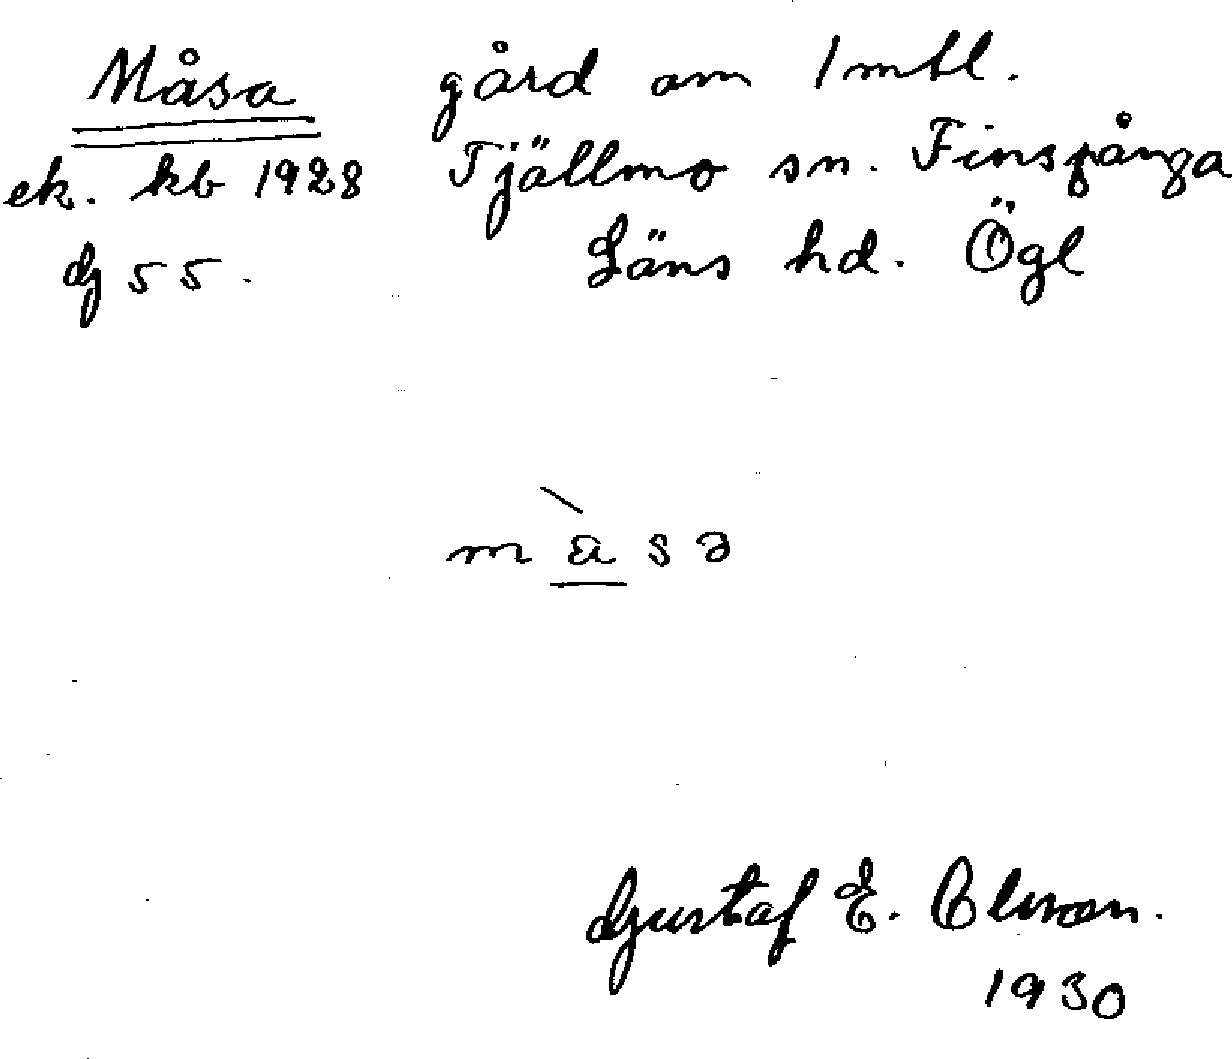 Måsa gård om 1 mtl.
ek. kb 1928 Tjällmo sn. Finspånga
dg 55. Läns hd. Ögl
m a s ə
Gustaf E. Olsson.
1930